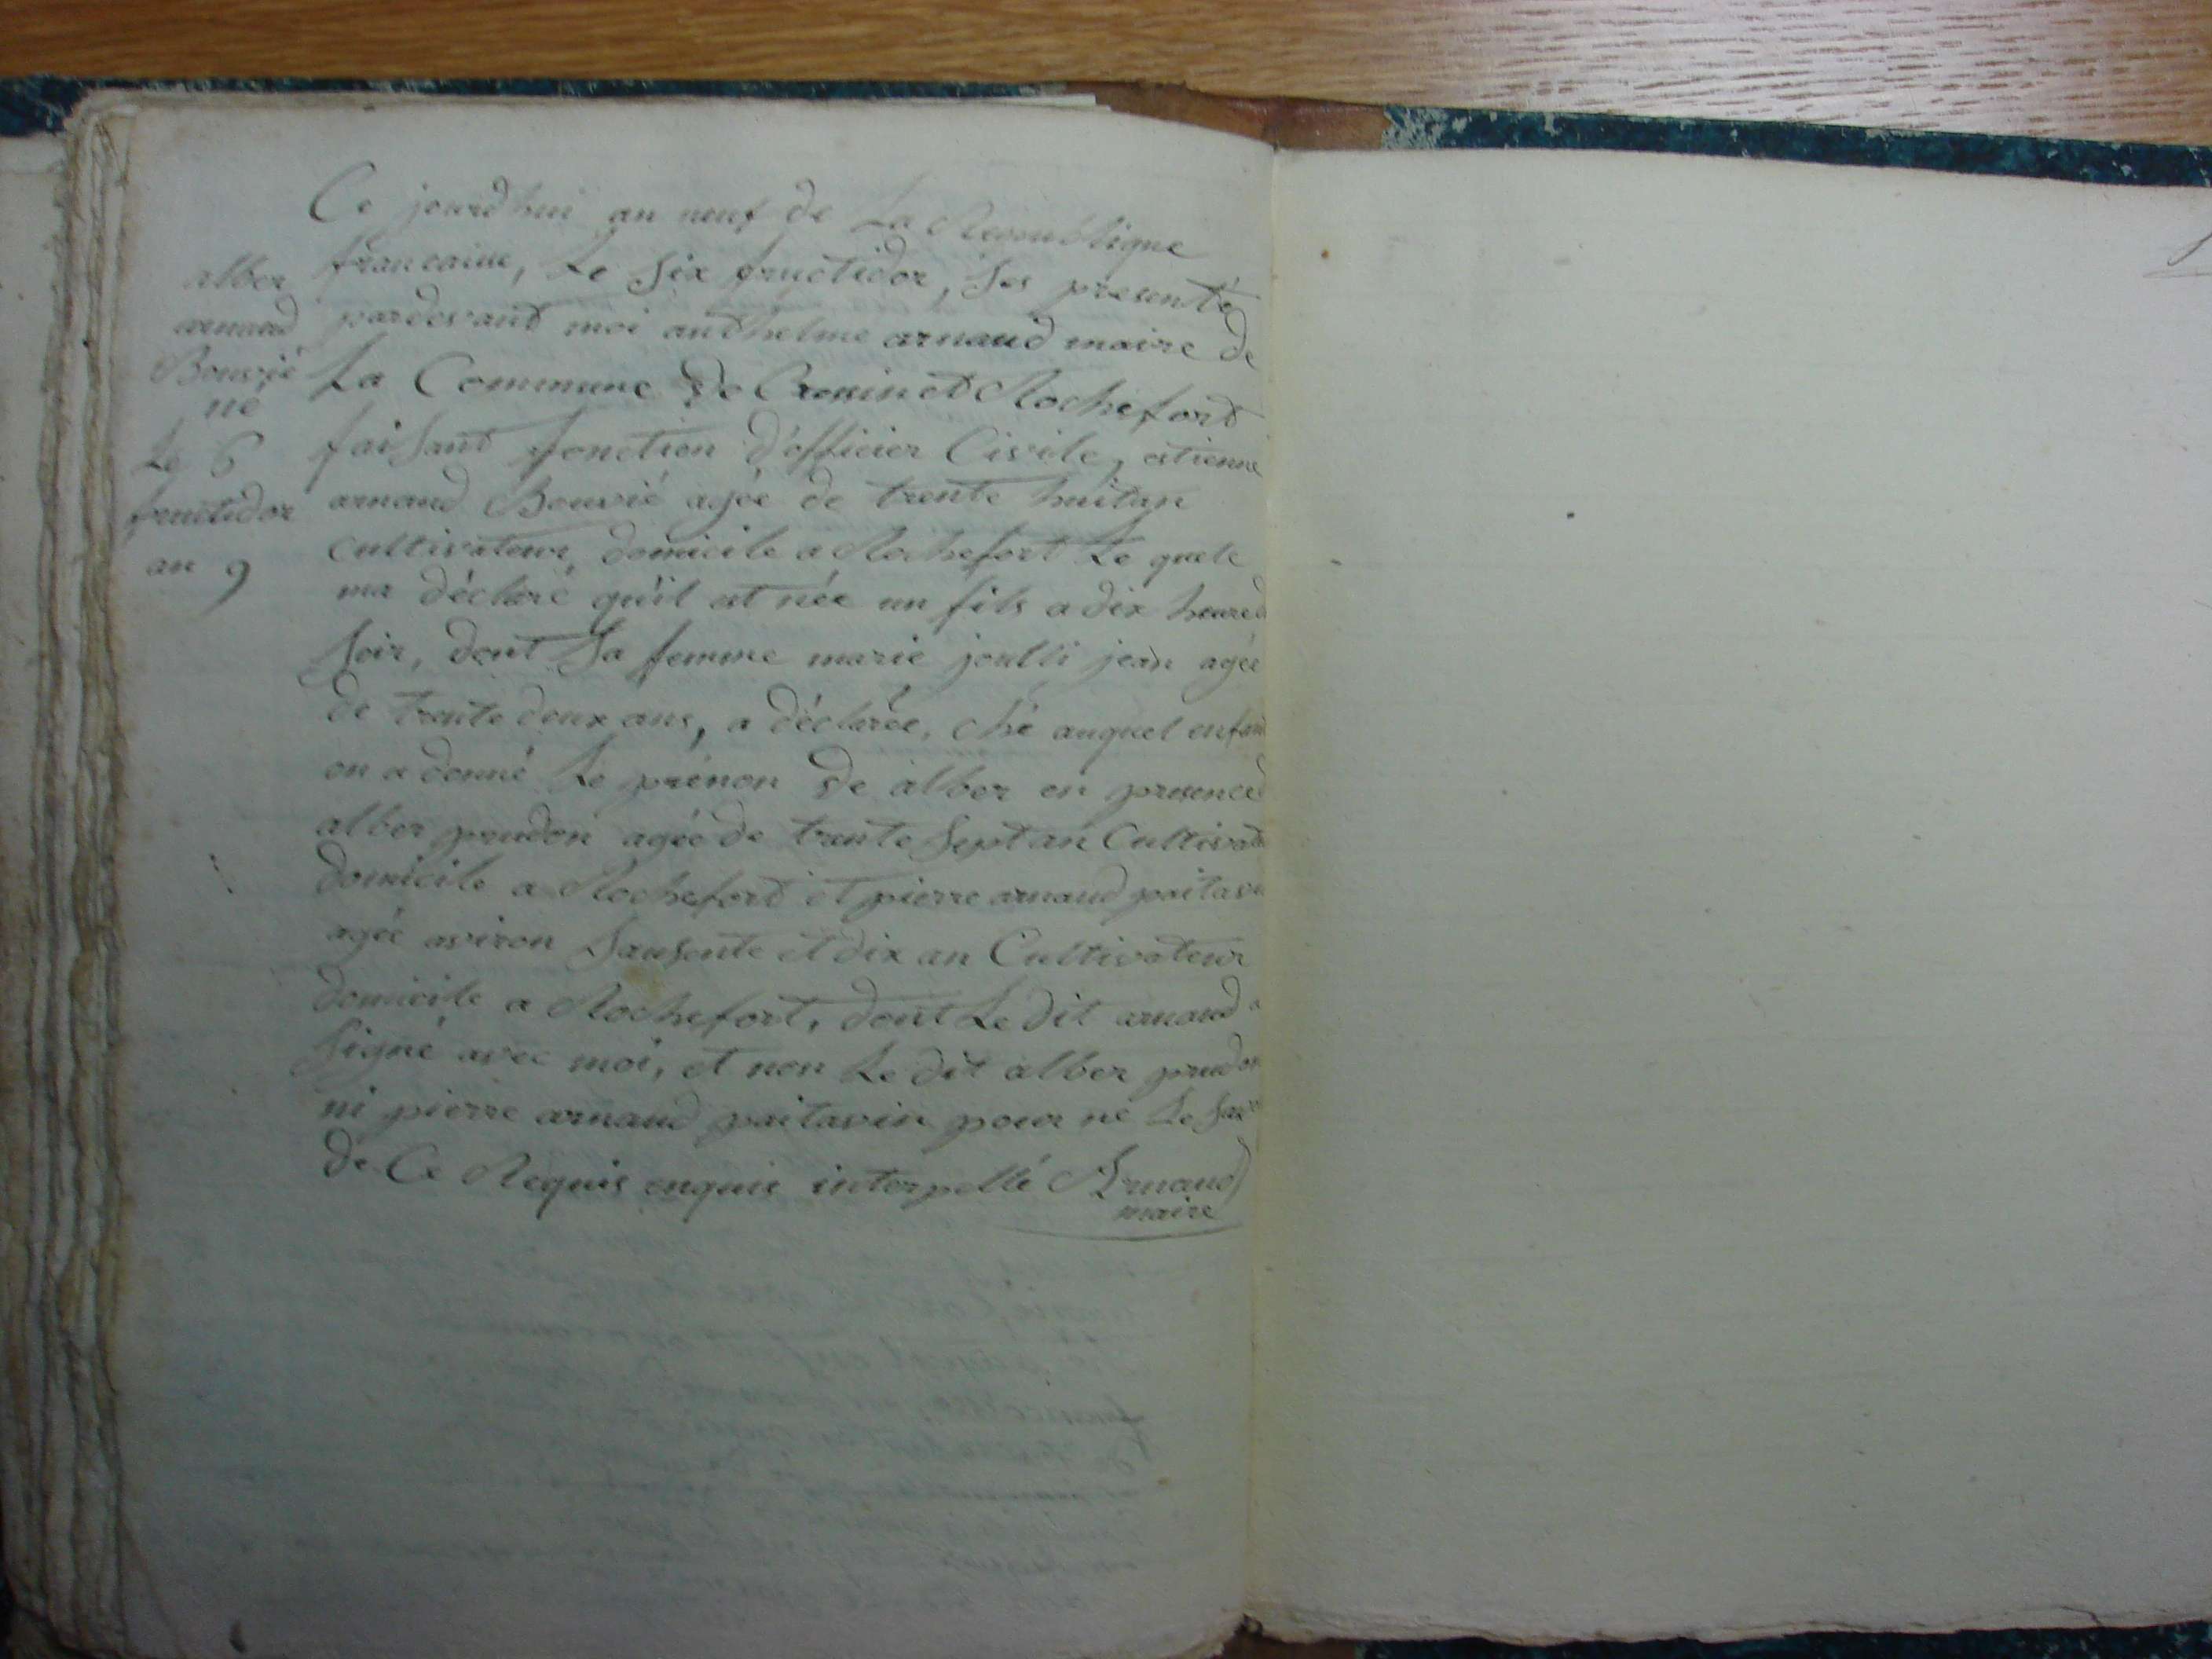 alber
arnaud
Bouvié
né
Le 6
fructidor
an 9
Ce jourdhui an neuf de La Republique
francaise, Le Six fructidor, Ses presenté
pardevand moi andhelme arnaud maire de
La Commune de Cressin et Rochefort
faisant fonction d'officier Civile, etienne
arnaud Bouvié agée de trente huit an
cultivateur, domicile a Rochefort Le quele
ma déclaré quil et née un fils a dix heure d
Soir, dont Sa femme marie jean agée
de trente deux ans, a déclarée, ché auquel enfan
on a donné Le prénon de alber en presence d
alber prudon agée de trente Sept an Cultivat
domicile a Rocheford et pierre arnaud paitavin
agée aviron Sausente et dix an Cultivateur
domicile a Rochefort, dont Le dit arnaud a
Signé avec moi, et non Le dit alber prudon
ni pierre arnaud paitavin pour ne Le Sav
de Ce Requis enquis interpellé Arnaud
maire